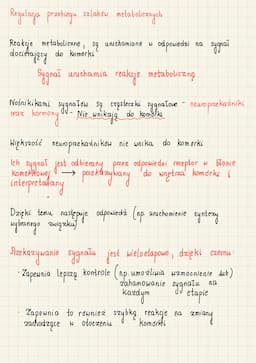 Regulacja przebiegu szlaków metabolicznych
Reakcje metaboliczne, są uruchamiane w odpowiedzi na sygnał
docierający do komórki
Sygnał uruchamia reakcję metaboliczną
Nośnikikami sygnałów są cząsteczki sygnałowe - neuroprzekaźniki
oraz hormony - Nie wnikają do komórki
Większość neuroprzekaźników nie wnika do komórki
Ich sygnał jest odbierany przez odpowiedni receptor w błonie
komórkowej → przekazywany do wnętrza komórki i
interpretowany
Dzięki temu następuje odpowiedź (np uruchomienie syntezy
wybranego związku)
Przekazywanie sygnału jest wieloetapowe, dzięki czemu:
· Zapewnia lepszą kontrolę (np. umożliwia wzmocnienie lub)
zahamowanie sygnału na
każdym etapie
· Zapewnia to również szybką reakcję na zmiany
zachodzące w otoczeniu komórki